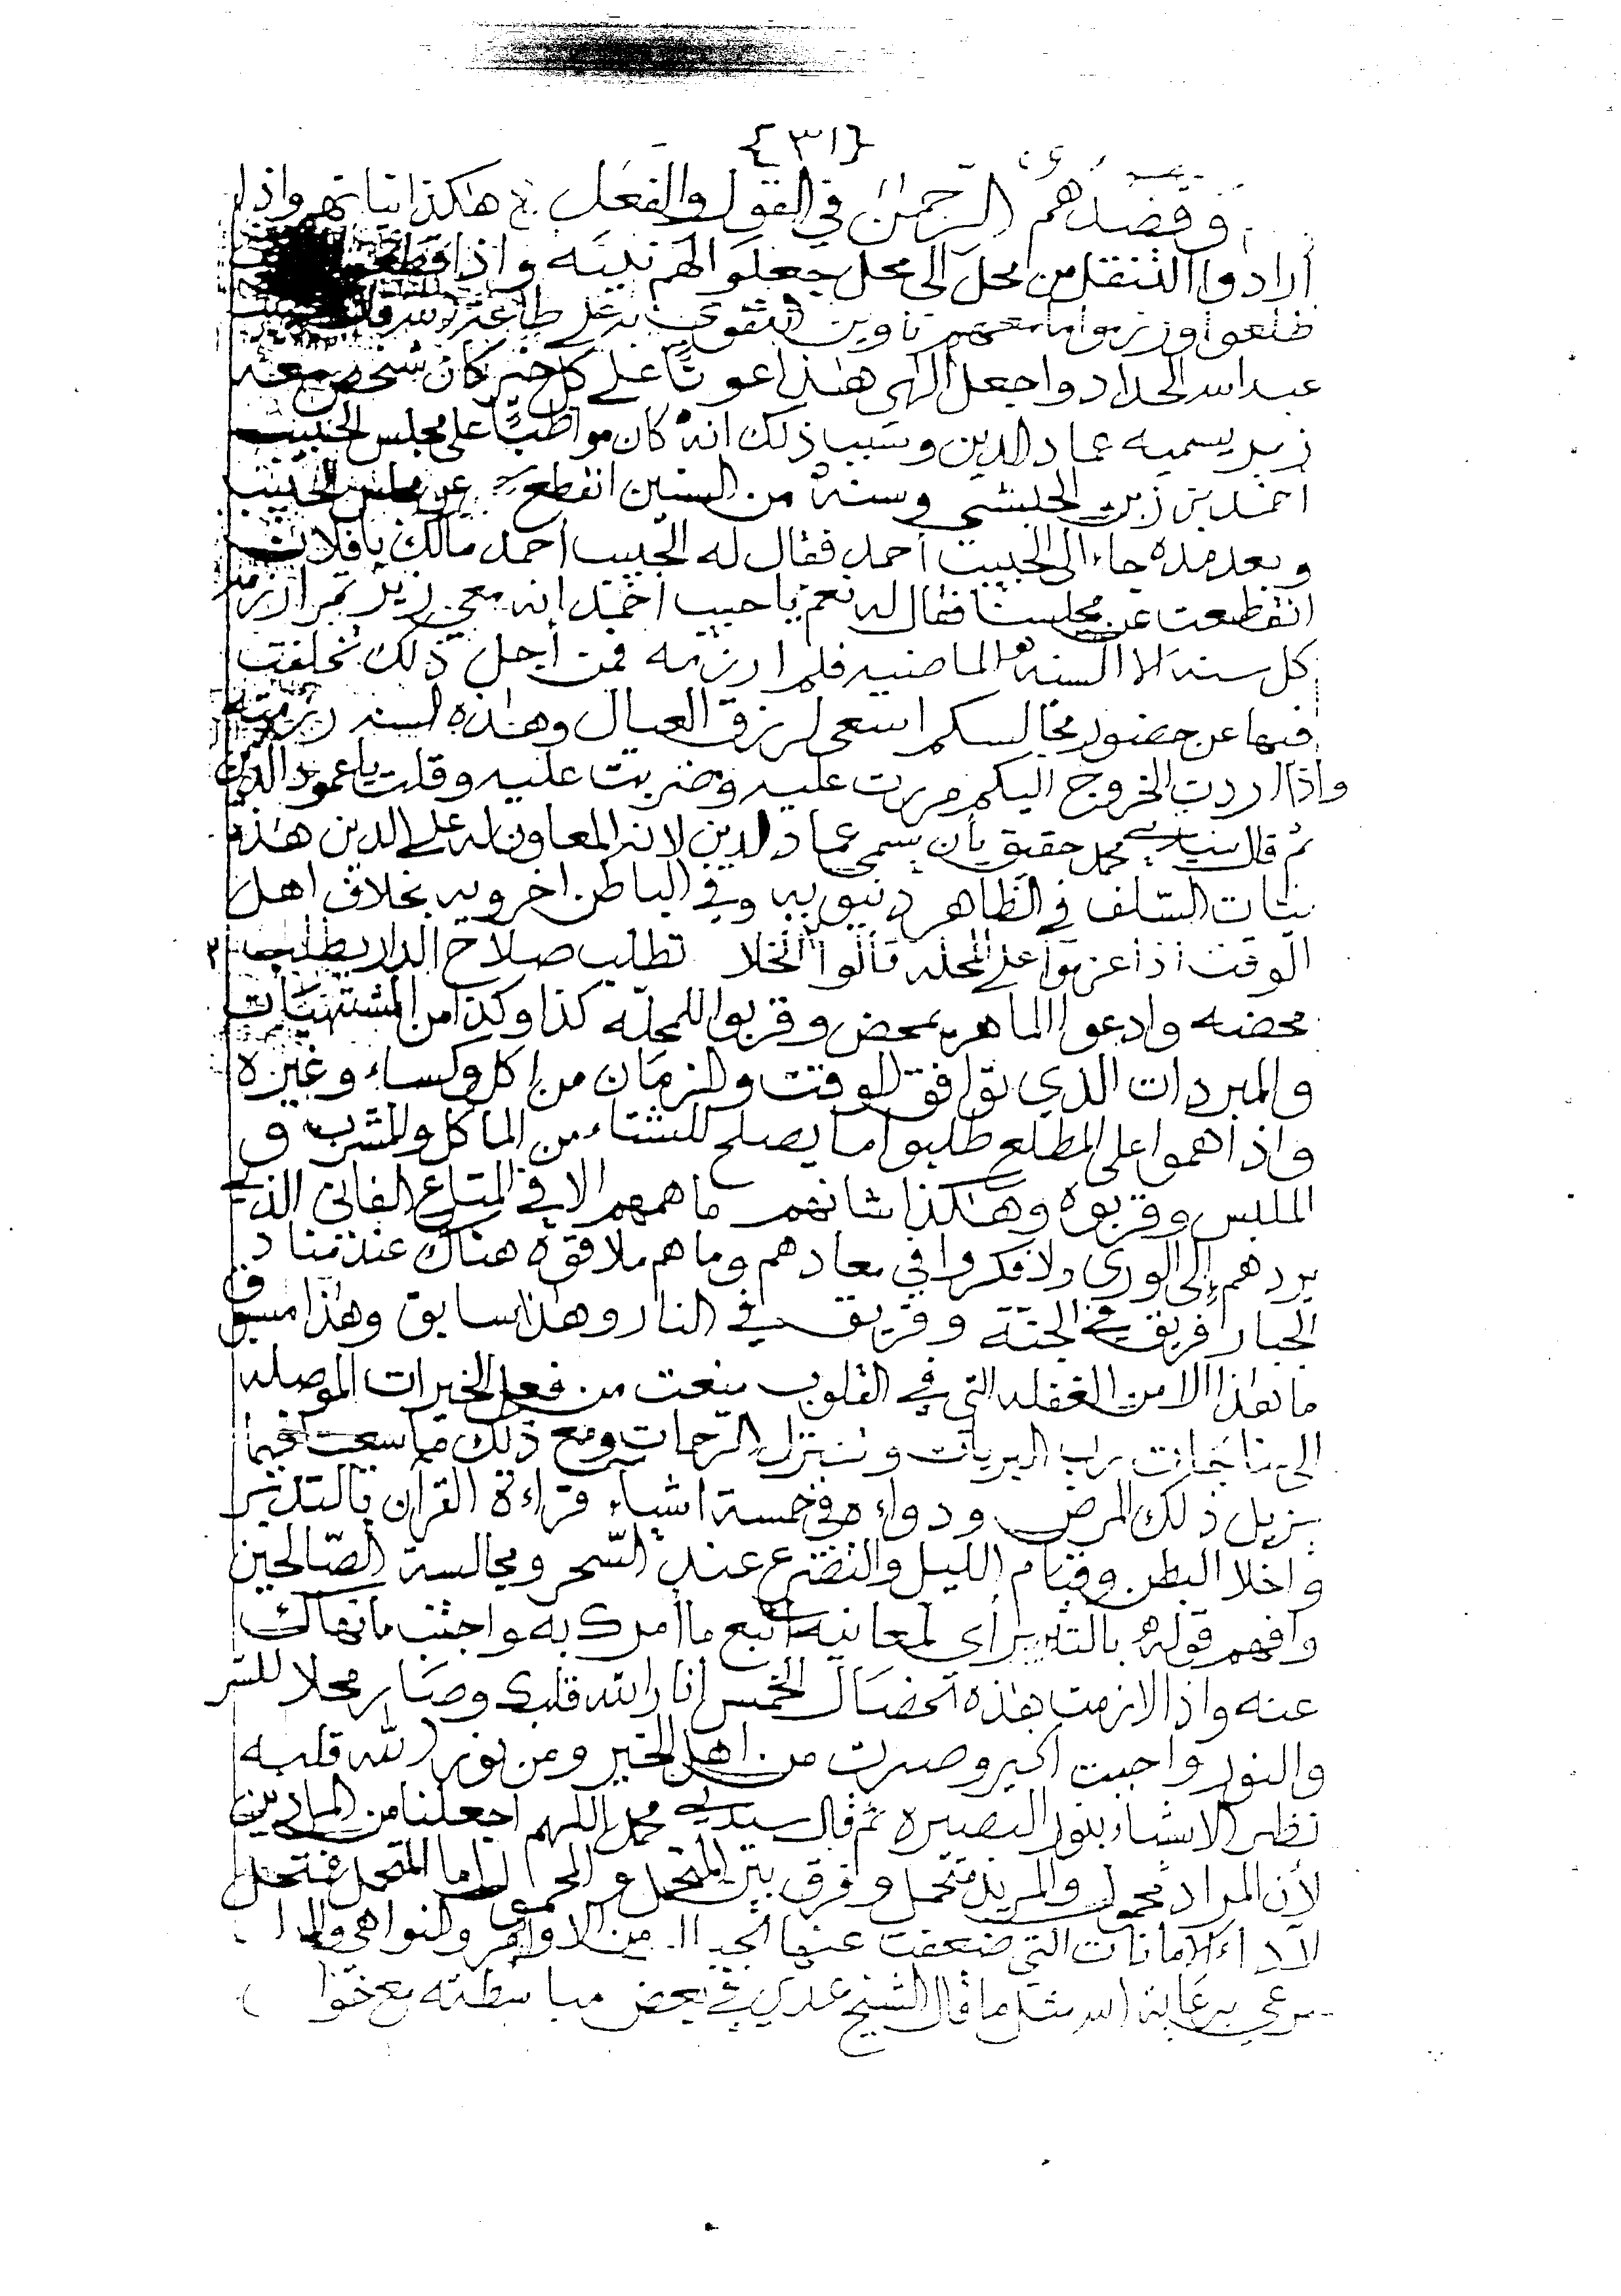 {٣١}
وقصدهم الرحمن في القول والفعل هاكذا نياتهم واذا
أرادوا التنقل من محل الى محل جعلوا لهم نيه واذا
طلعوا وزربوا ما معهم ناوين التقوي به على طاعة الله
عبدالله الحداد واجعل الهي هذا عونًا على كل خير كان شخص معه
زبر يسميه عماد الدين وسبب ذلك انه كان مواظبًا على مجلس الحبيب
احمد بن زين الحبشي وسنة من السنين انقطع عن مجلس الحبيب
وبعد مده جاء الى الحبيب أحمد فقال له الحبيب احمد مالك يا فلان
انقطعت عن مجلسنا فقال له نعم يا حبيب احمد انه معي زبر تمر ازرمه
كل سنه الا السنه الماضيه فلم ارزمه فمن أجل ذلك تخلفت
فيها عن حضور مجالسكم اسعى لرزق العيال وهذه السنه رزمته
واذا اردت الخروج اليكم مررت عليه وضربت عليه وقلت يا عمود الدين
ثم قال سيدي محمد حقيق بأن يسمى عماد الدين لانه المعاون له على الدين هذه
نيات السلف في الظاهر دنيويه وفي الباطن اخرويه بخلاف اهل
الوقت اذا عزموا على المحله قالوا النخلا تطلب صلاح الدار يطلب
محضه وادعوا الماهر يمحض وقربوا للمحلّه كذا وكذا من المشتهيات
والمبردات الذي توافق الوقت والزمان من اكل وكساء وغيره
واذا هموا على المطلع طلبوا ما يصلح للشتاء من الماكل والمشرب و
الملبس وقربوه وهاكذا شانهم ما همهم الا في المتاع الفاني الذي
يردهم إلى الورى ولا فكروا في معادهم وما هم ملاقوه هناك عند مناد
الجبار فريق في الجنة وفريق في النار وهذا سابق وهذا مسبوق
ما هذا الا من الغفله التي في القلوب منعت من فعل الخيرات الموصله
الى مناجات رب البريات وتنزل الرحمات ومع ذلك ما سعت فيما
يزيل ذلك المرض ودواءه في خمسة اشياء قراءة القران بالتدبر
واخلا البطن وقيام الليل والتضرع عند السحر ومجالسة الصالحين
وافهم قوله بالتدبر أي لمعانيه اتبع ما أمرك به واجتنب ما نهاك
عنه واذا لازمت هذه الخصال الخمس انار الله قلبك وصار محلا للسر
والنور واحببت الخير وصرت من اهل الخير ومن نور الله قلبه
نظر الاشياء بنور البصيره ثم قال سيدي محمد اللهم اجعلنا من المرادين
لأن المراد محمول والمريد متحمل وفرق بين المتحمل والمحمول اما المتحمل فتحمل
لأداء الامانات التي ضعفت عنها الجبال من الاوامر والنواهي
برعاية الله مثل ما قال الشيخ عدي في بعض مباسطته مع